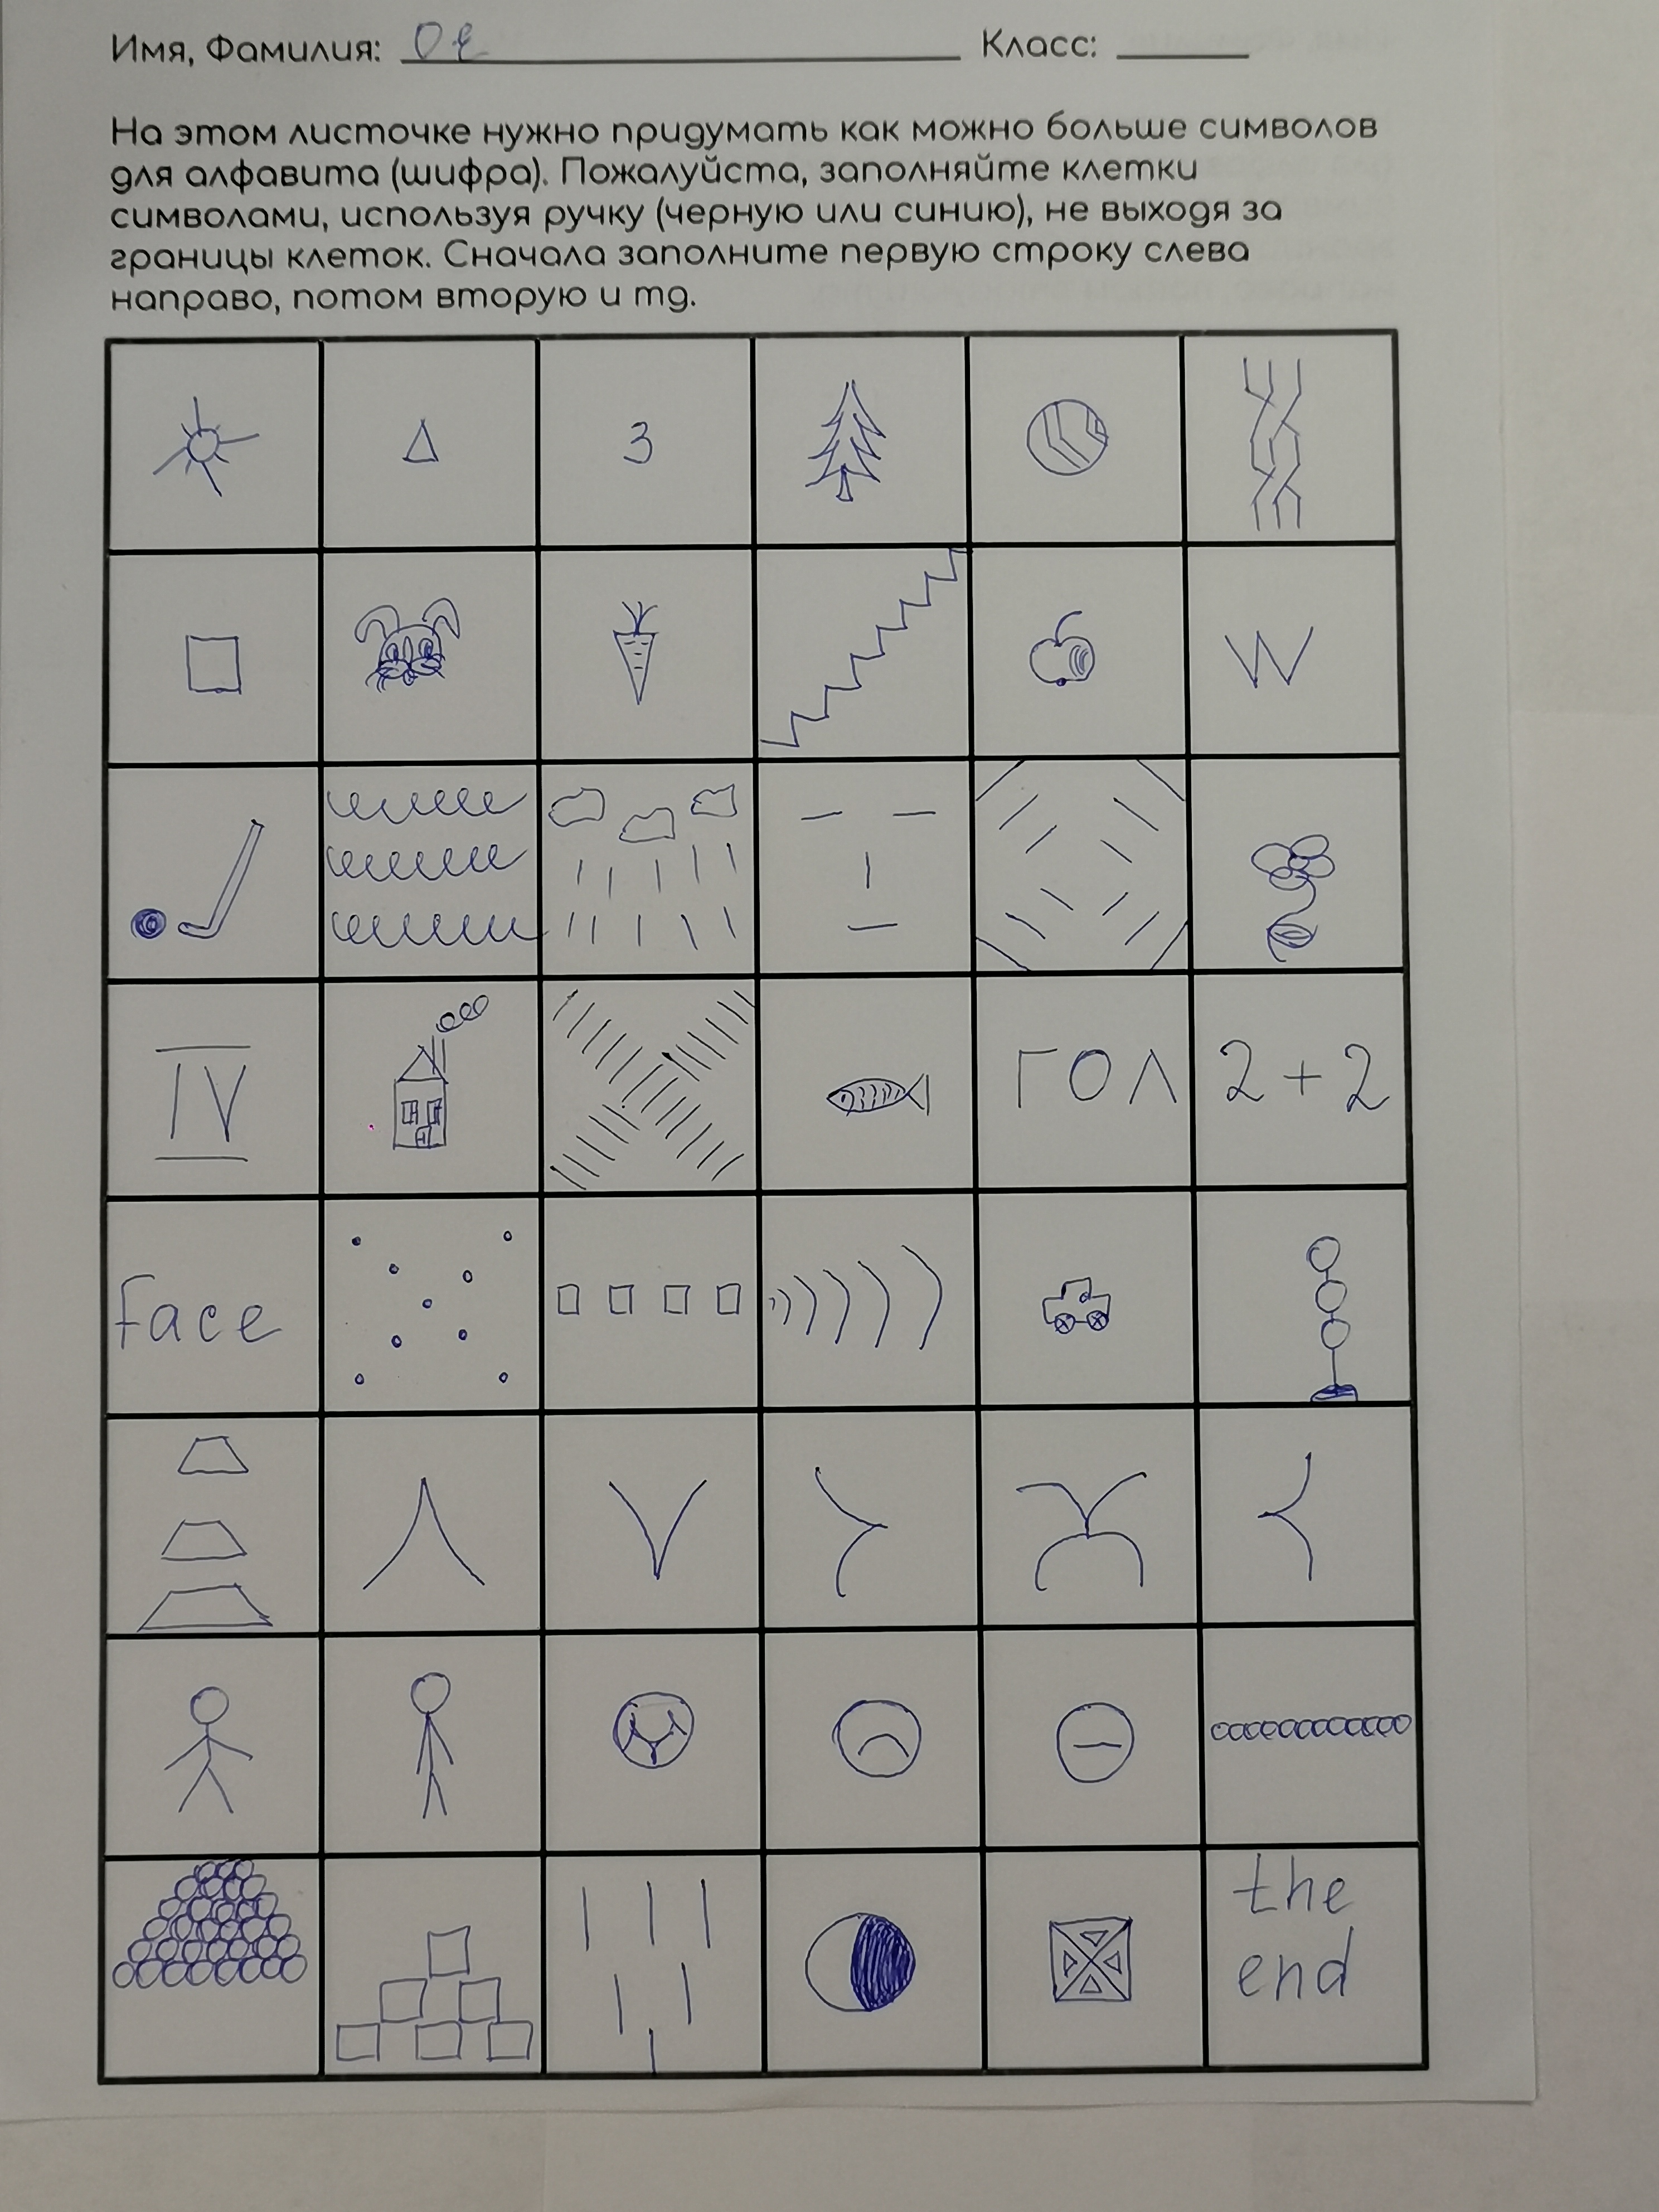 Имя, Фамилия: Ое Класс:
На этом листочке нужно придумать как можно больше символов
для алфавита (шифра). Пожалуйста, заполняйте клетки
символами, используя ручку (черную или синию), не выходя за
границы клеток. Сначала заполните первую строку слева
направо, потом вторую и тд.
3
W
IV ГОЛ 2+2
face
the
end